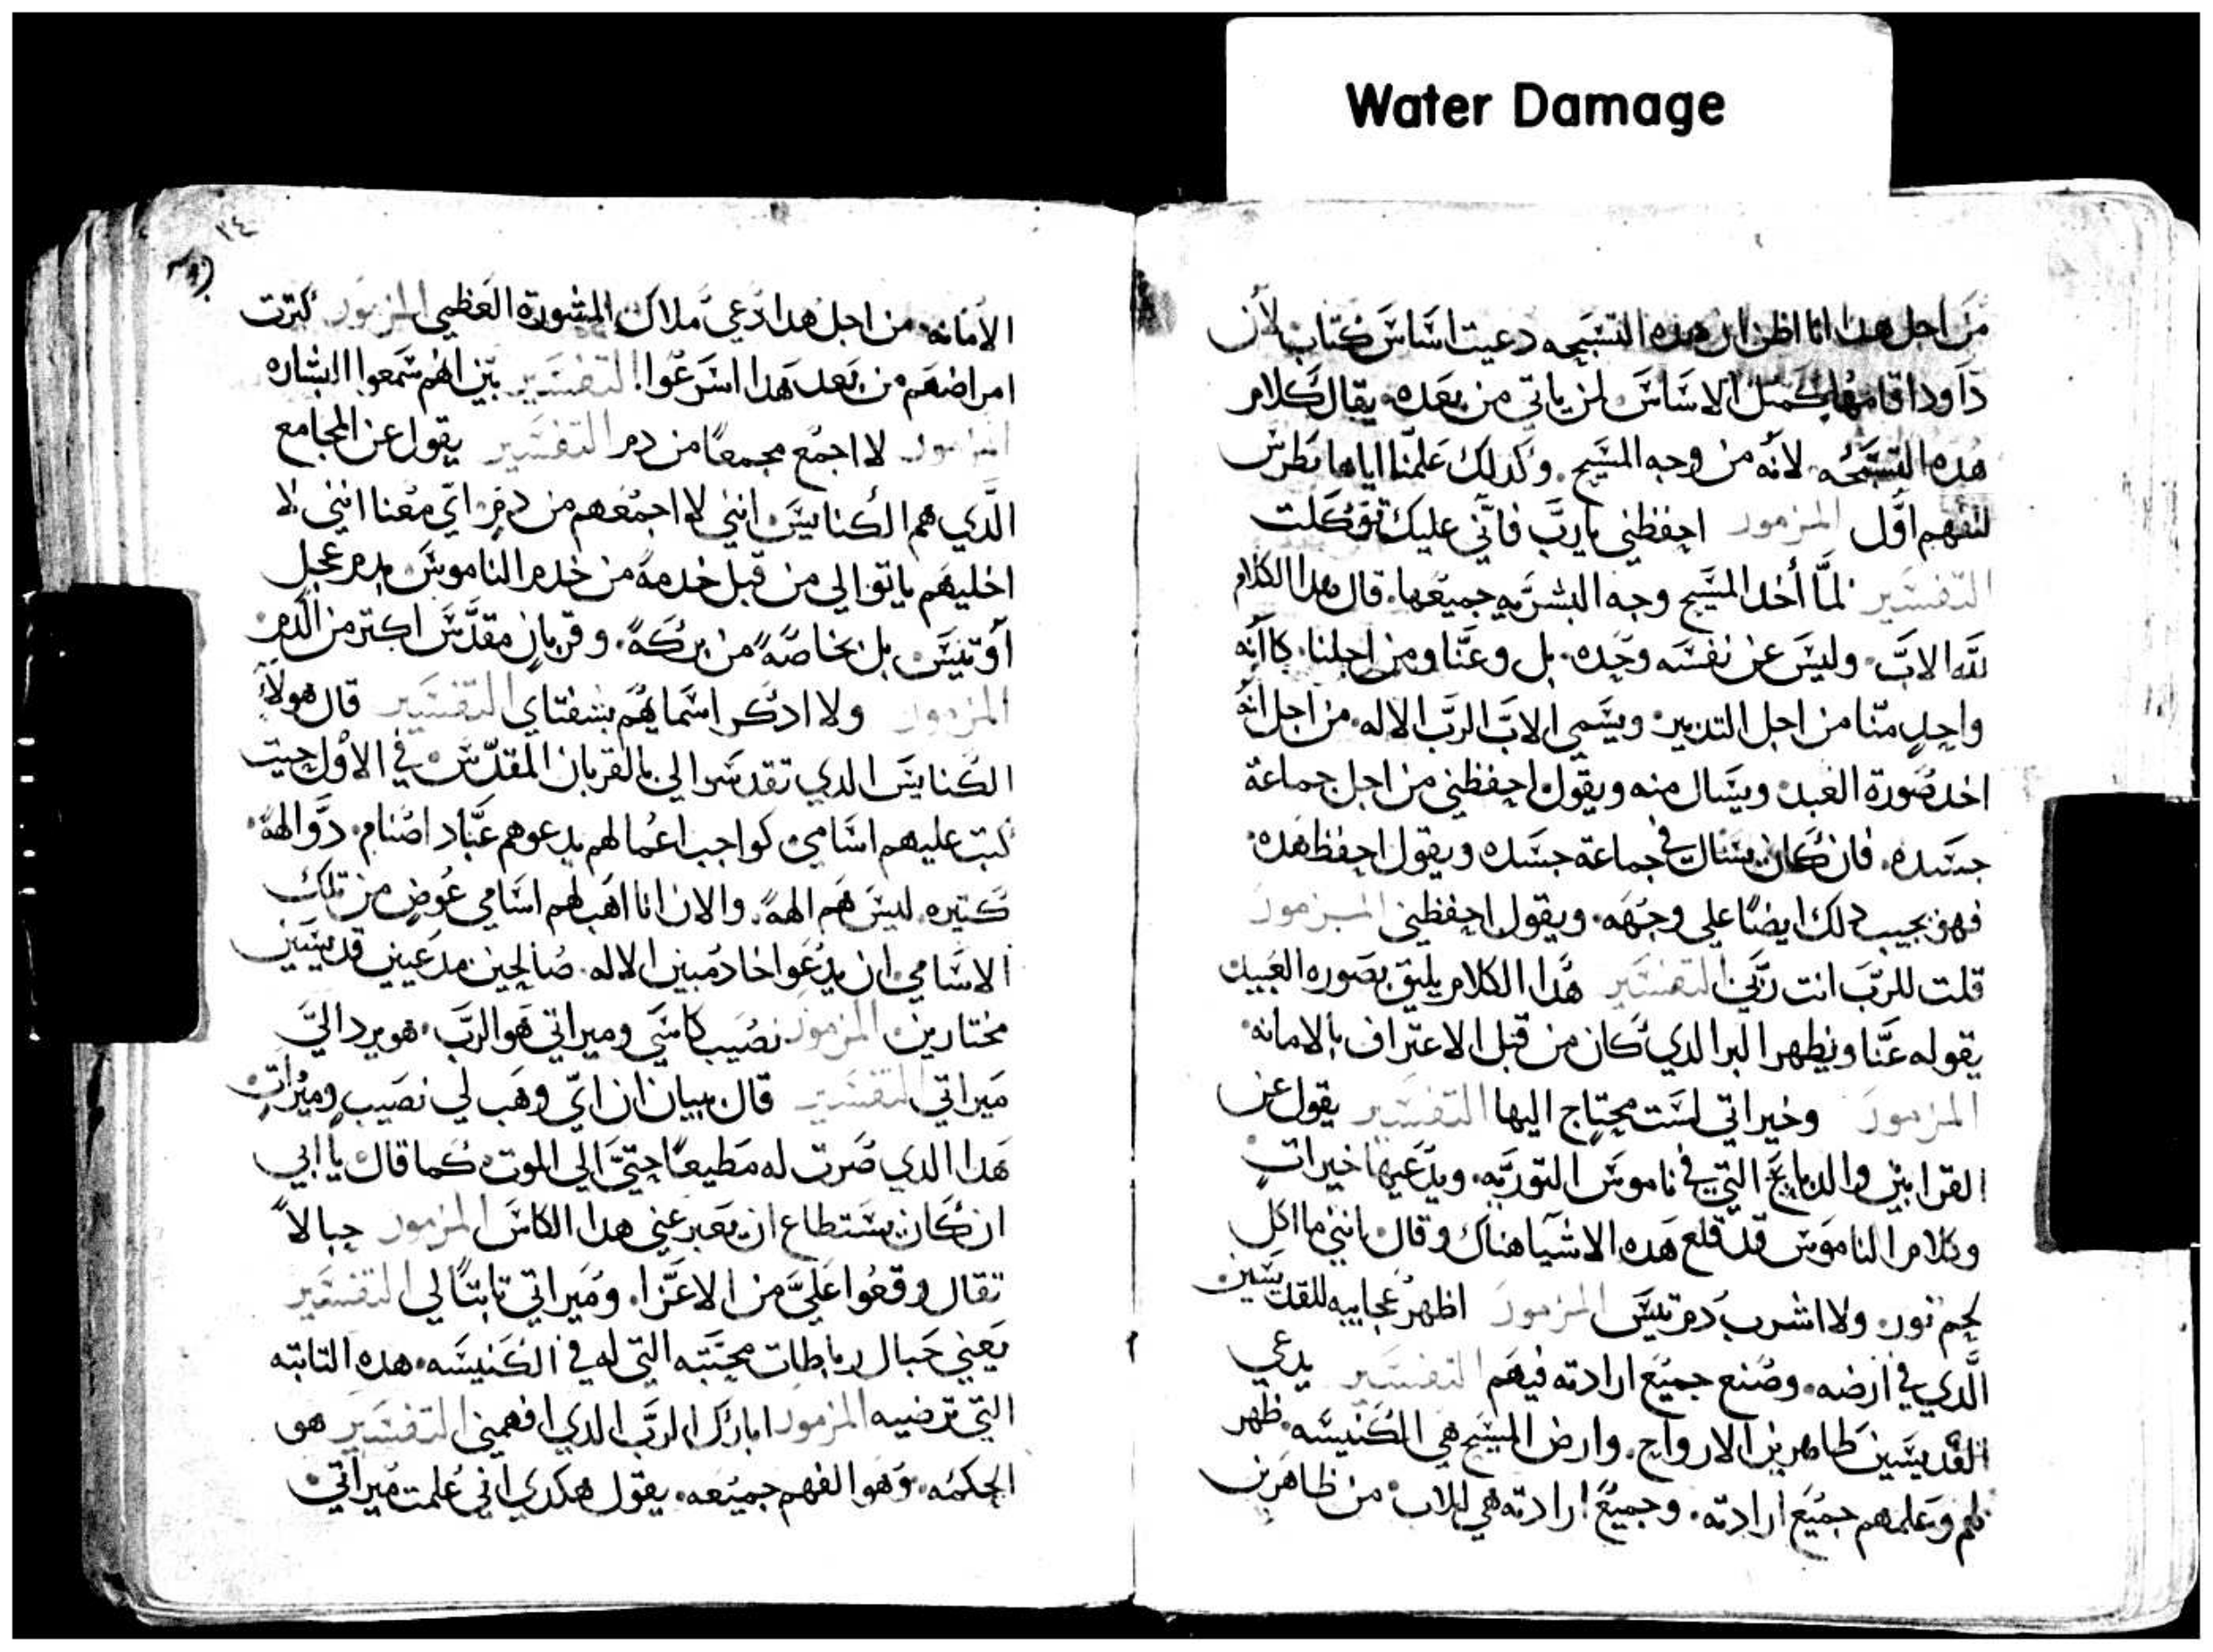 Water Damage
من اجل هدا انا اظن ان هده التسبحه دعيت اساس كتاب لان
داوود اقامها كمتل الاساس لمن ياتي من بعده. يقال كلام
هده التسبحه لانه من وجه المسيح. وكدلك علمنا اياها بطرس
لنفهم اول المزمور احفظني يارب فاني عليك توكلت
التفسير لما أخد المسيح وجه البشريه جميعها. قال هدا الكلام
لله الاب. وليس عن نفسه وحده. بل وعنا ومن اجلنا. كاانه
واحد منا من اجل التدبير. ويسمي الاب الرب الاله. من اجل انه
اخد صورة العبد. ويسال منه ويقول احفظني من اجل جماعة
جسده. فان كان يسال في جماعة جسده ويقول احفظ هده.
فهو يجيب دلك ايضا علي وجهه. ويقول احفظني المزمور
قلت للرب انت ربي التفسير هدا الكلام يليق بصوره العبيد
يقوله عنا ويظهر البر الدي كان من قبل الاعتراف بالامانه.
المزمور وخيراتي لست محتاج اليها التفسير يقول عن
القرابين والدبايح التي في ناموس التوريه. ويدعيها خيرات
وكلام الناموس قد قلع هده الاشيا هناك وقال انني ما اكل
لحم تور. ولا اشرب دم تيس المزمور اظهر عجايبه للقديسين
الدي في ارضه. وصنع جميع ارادته فيهم التفسير يدعي
القديسين طاهرين الارواح. وارض المسيح هي الكنيسه. ظهر
لهم وعلمهم جميع ارادته. وجميع ارادته هي للاب من ظاهرين
٢٤
الامانه. من اجل هدا دعي ملاك المشورة العظمي المزمور كترت
امراضهم من بعد هدا اسرعوا التفسير بين انهم سمعوا البشاره
المزمور لا اجمع مجمعا من دم التفسير يقول عن المجامع
الدي هم الكنايس انني لا اجمعهم من دم. اي معنا انني لا
اخليهم ياتوا الي من قبل خدمة من خدم الناموس بدم عجل
أو تيس بل بخاصة من بركة. وقربان مقدس اكتر من الدم.
المزمور ولا ادكر اسمايهم بشفتاي التفسير قال هولاء
الكنايس الدي تقدسوا لي بالقربان المقدس في الاول حيت
كتب عليهم اسامي كواجب اعمالهم يدعوهم عباد اصنام. دو الهة
كتيره. ليس هم الهة. والان انا اهب لهم اسامي عوض من تلك
الاسامي ان يدعوا خادمين الاله. صالحين مدعيين قديسين
مختارين المزمور نصيب كاسي وميراتي هو الرب. هو يرد الي
ميراتي التفسير قال ببيان ان ابي وهب لي نصيب وميرات
هدا الدي صرت له مطيعا حتي الي الموت. كما قال يا ابي
ان كان يستطاع ان يعبر عني هدا الكاس المزمور حبالا
تقال وقعوا علي من الاعزا. وميراتي تابتا لي التفسير
يعني حبال رباطات محبته التي له في الكنيسه. هده التابته
التي ترضيه المزمور ابارك الرب الدي افهمني التفسير هو
الحكمه. وهو الفهم جميعه. يقول هكدي اني علمت ميراتي